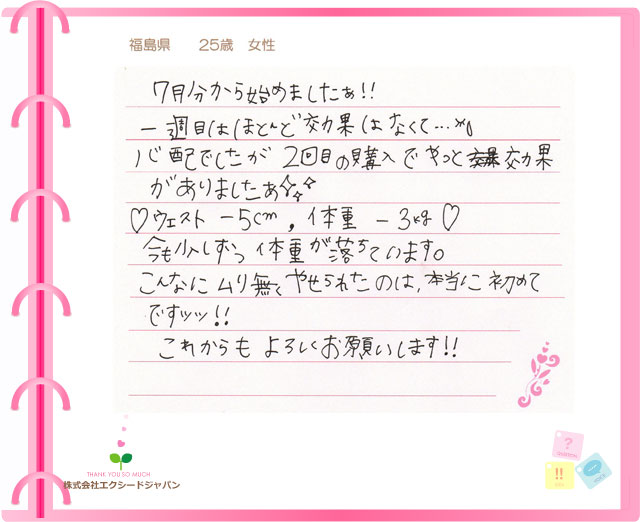 福島県　　25歳　女性
7月分から始めましたぁ!!
一週目はほとんど効果はなくて…
心配でしたが 2回目の購入でやっと 効果
がありましたぁ
♡ウェスト －5cm, 体重 －3kg♡
今も少しずつ 体重が落ちています。
こんなに ムリ無く やせられたのは、本当に 初めて
ですッッ!!
これからも よろしくお願いします!!
THANK YOU SO MUCH
株式会社エクシードジャパン
?
!!